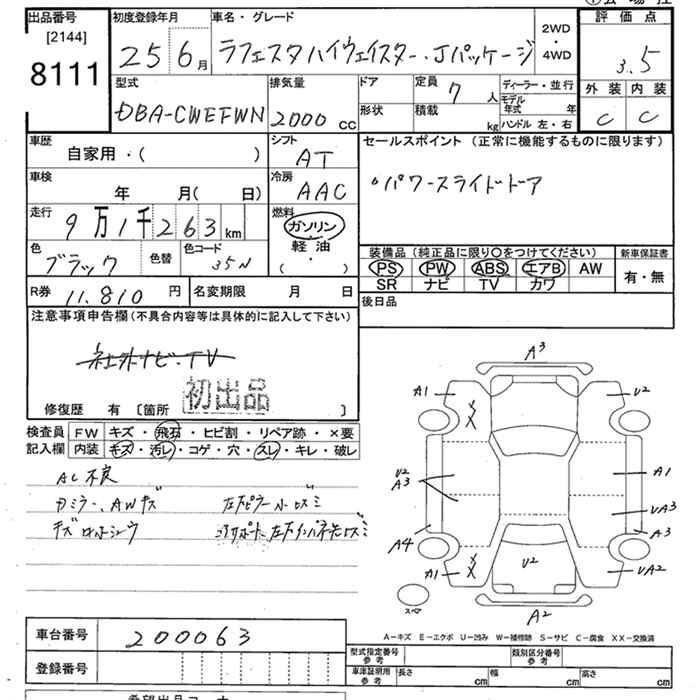 出品番号
[2144]
8111
初度登録年月
25 6月
車名・グレード
ラフェスタハイウェイスター.Jパッケージ
2WD
・
4WD
評価点
3.5
外装 内装
C C
型式
DBA-CWEFWN
排気量
2000 cc
ドア
形状
定員 7 人
積載 kg
ディーラー・並行
モデル年式 年
ハンドル 左・右
車歴
自家用・( )
シフト
AT
セールスポイント (正常に機能するものに限ります)
パワースライドドア
車検
年 月( 日)
冷房
AAC
走行
9万1千263km
燃料
ガソリン
軽油
( ・ )
色
ブラック
色替
色コード
35N
装備品 (純正品に限り〇をつけてください)
PS PW ABS エアB AW
SR ナビ TV カワ
新車保証書
有・無
R券 11.810 円
名変期限 月 日
後日品
注意事項申告欄 (不具合内容等は具体的に記入して下さい)
社外ナビ・TV
初出品
修復歴 有 [箇所 ]
検査員記入欄
FW キズ・飛石・ヒビ割・リペア跡・×要
内装 キズ・汚レ・コゲ・穴・スレ・キレ・破レ
AC不良
カミラー、AWキズ
A3
A1 U2
X X
U2 A3
A1
UA3
A3
A4
A1 X X
U2
UA2
スペア
A2
A−キズ E−エクボ U−凹み W−補修跡 S−サビ C−腐食 XX−交換済
車台番号 200063
登録番号
型式指定番号 参考
類別区分番号 参考
車庫証明用 参考
長さ cm
幅 cm
高さ cm